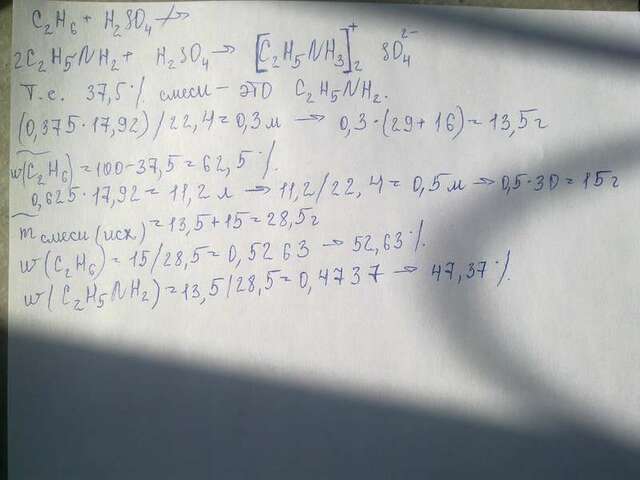 C₂H₆ + H₂SO₄ ↛
2C₂H₅NH₂ + H₂SO₄ → [C₂H₅NH₃]₂⁺ SO₄²⁻
Т.е. 37,5% смеси – это C₂H₅NH₂.
(0,375·17,92)/22,4=0,3м → 0,3·(29+16)=13,5г
w(C₂H₆)=100-37,5=62,5%.
0,625·17,92=11,2л → 11,2/22,4=0,5м → 0,5·30=15г
m смеси (исх)=13,5+15=28,5г
w(C₂H₆)=15/28,5=0,5263 → 52,63%.
w(C₂H₅NH₂)=13,5/28,5=0,4737 → 47,37%.